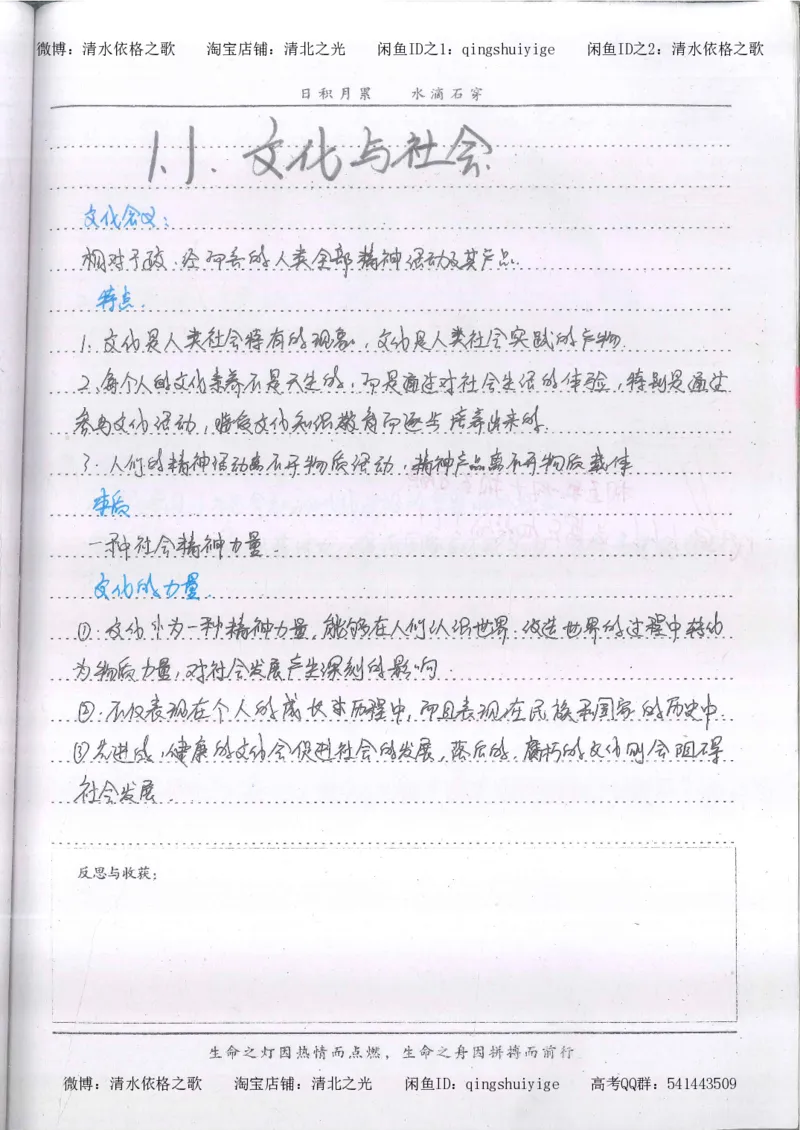 微博：清水依格之歌 淘宝店铺：清北之光 闲鱼ID之1：qingshuiyige 闲鱼ID之2：清水依格之歌
日积月累 水滴石穿
1.1. 文化与社会
文化含义：
相对于政、经而言的人类全部精神活动及其产品.
特点.
1. 文化是人类社会特有的现象，文化是人类社会实践的产物.
2、每个人的文化素养不是天生的，而是通过对社会生活的体验，特别是通过
参与文化活动，接受文化知识教育而逐步培养出来的.
3. 人们的精神活动离不开物质活动，精神产品离不开物质载体
本质
一种社会精神力量.
文化的力量.
①. 文化作为一种精神力量，能够在人们认识世界、改造世界的过程中转化
为物质力量，对社会发展产生深刻的影响.
②. 不仅表现在个人的成长历程中，而且表现在民族和国家的历史中.
③先进的，健康的文化会促进社会的发展，落后的，腐朽的文化则会阻碍
社会发展.
反思与收获：
生命之灯因热情而点燃，生命之舟因拼搏而前行
微博：清水依格之歌 淘宝店铺：清北之光 闲鱼ID：qingshuiyige 高考QQ群：541443509